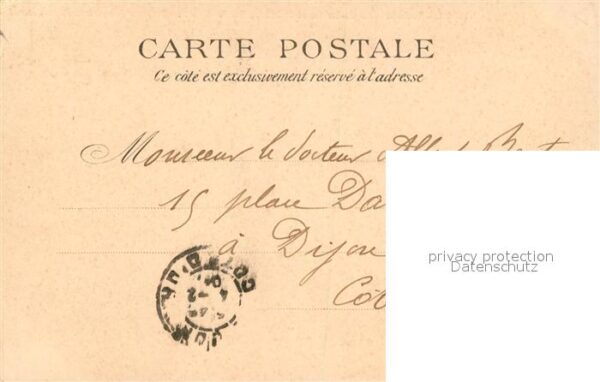 CARTE POSTALE
Ce côté est exclusivement réservé à l'adresse
Monsieur le docteur
15 place Da
à Dijon
Cô
privacy protection
Datenschutz
COTE D'OR